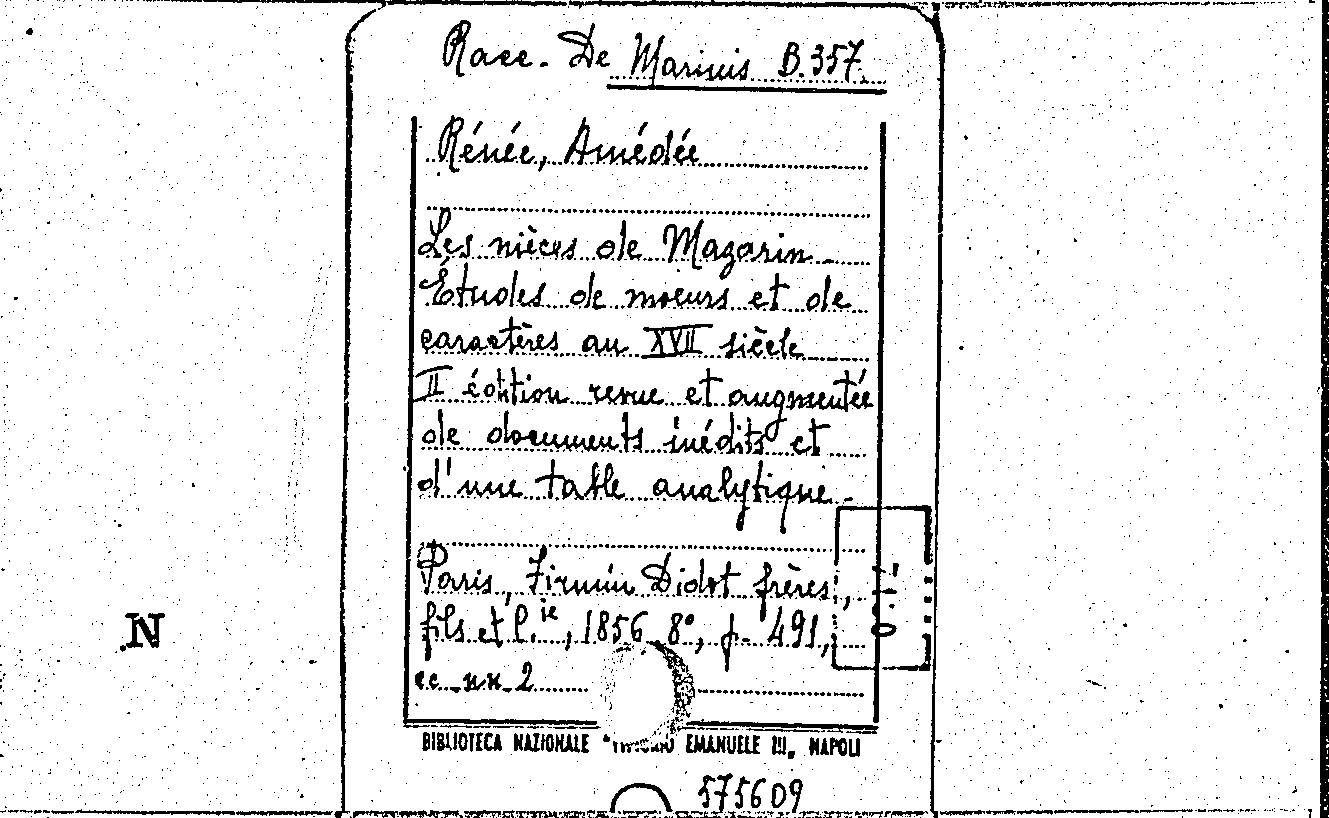 Racc. De Marinis B.357.
Rénée, Amédée
Les nièces de Mazarin
Études de moeurs et de
caractères au XVII siècle
II édition revue et augmentée
de documents inédits et
d'une table analytique.
Paris, Firmin Didot frères,
fils et C.ie, 1856, 8°, p. 491,
cc. nn. 2
N
BIBLIOTECA NAZIONALE "VITTORIO EMANUELE III„ NAPOLI
575609